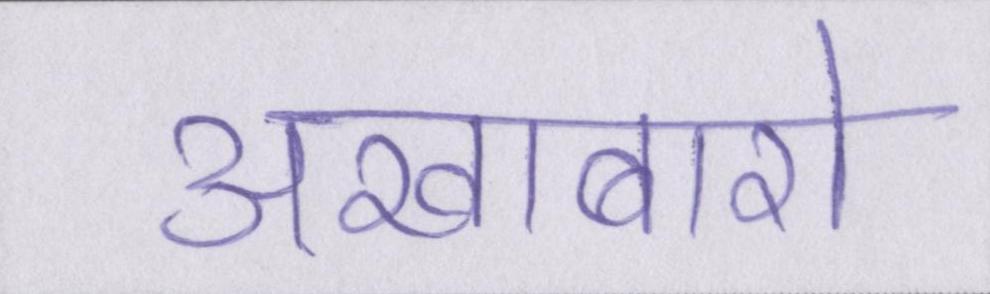 अखाबारो